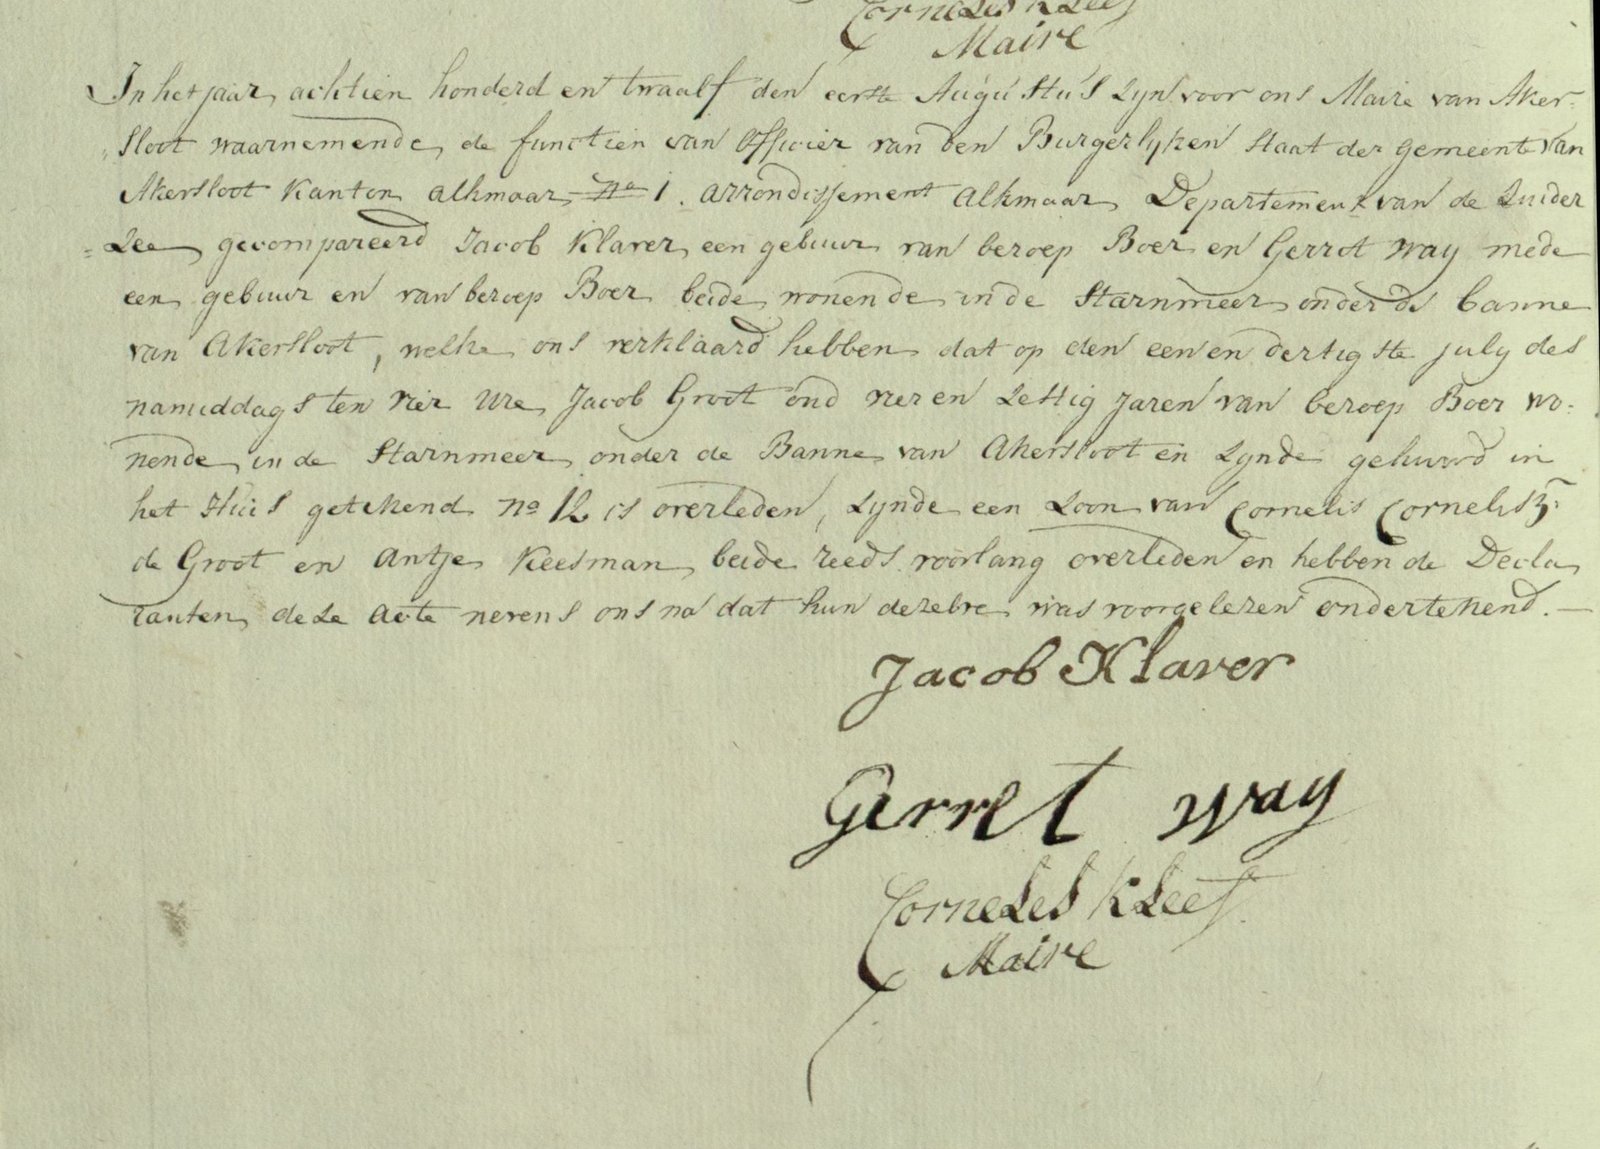 Cornelis Klees
Maire
In het jaar achtien honderd en twaalf den eerste Augustus zyn voor ons Maire van Aker-
„sloot waarnemende de functien van Officier van den Burgerlyken Staat der gemeente van
Akersloot Kanton alkmaar No 1. arrondissement alkmaar Departement van de Zuider
=Zee gecompareerd Jacob Klaver een gebuur van beroep Boer en Gerrot Way mede
een gebuur en van beroep Boer beide wonende in de Starnmeer onder de banne
van Akersloot, welke ons verklaard hebben dat op den een en dertigste july des
namiddags ten vier Ure Jacob Groot oud vier en Zestig Jaren van beroep Boer wo-
nende in de Starnmeer onder de Banne van Akersloot en Zynde gehuwd in
het Huis getekend No 12 is overleden, Zynde een Zoon van Cornelis Cornelisz:
de Groot en Antje Keesman beide reeds voorlang overleden en hebben de Decla
ranten deze acte nevens ons na dat hun dezelve was voorgelezen ondertekend. —
Jacob Klaver
Gerret Way
Cornelis Klees
Maire